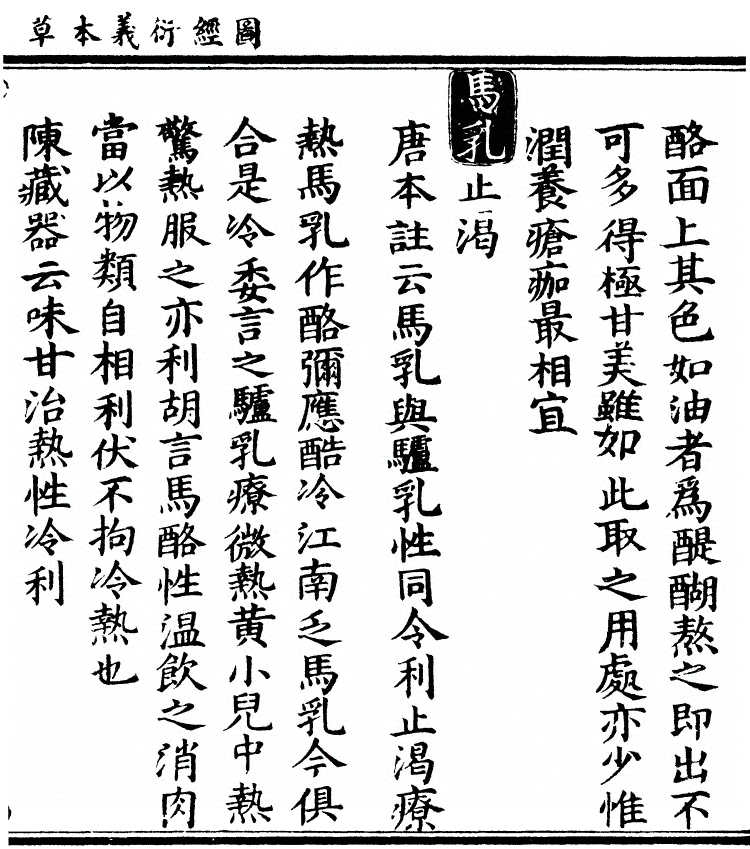 圖經衍義本草
酪面上其色如油者爲醍醐熬之即出不
可多得極甘美雖如此取之用處亦少惟
潤養瘡痂最相宜
馬乳止渴
唐本註云馬乳與驢乳性同令利止渴療
熱馬乳作酪彌應酷冷江南乏馬乳今俱
合是冷委言之驢乳療微熱黄小兒中熱
驚熱服之亦利胡言馬酪性温飲之消肉
當以物類自相利伏不拘冷熱也
陳藏器云味甘治熱性冷利